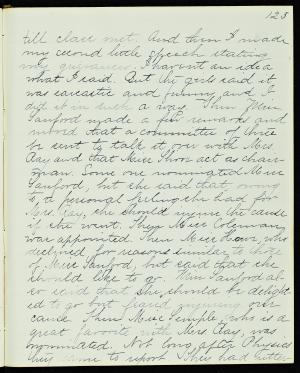 123
till class met. And then I made
my second little speech stating
my grievances. I haven't an idea
what I said. But the girls said it
was sarcastic and funny, and I
did it in such a way. Then Miss
Sanford made a few remarks and
moved that a committee of three
be sent to talk it over with Mrs.
Clay and that Miss Thom act as chair-
man. Some one nominated Miss
Sanford, but she said that, owing
to a personal feeling she had for
Mrs. Clay, she should injure the cause
if she went. Then Miss Coleman
was appointed. Then Miss who
declined for reasons similar to those
of Miss Sanford, but said that she
should like to go. Miss Sanford al-
so said that she should be delight-
ed to go but feared injuring our
cause. Then Miss Temple, who is a
great favorite with Mrs. Clay, was
nominated. Not long after Physics
they came to report. They had